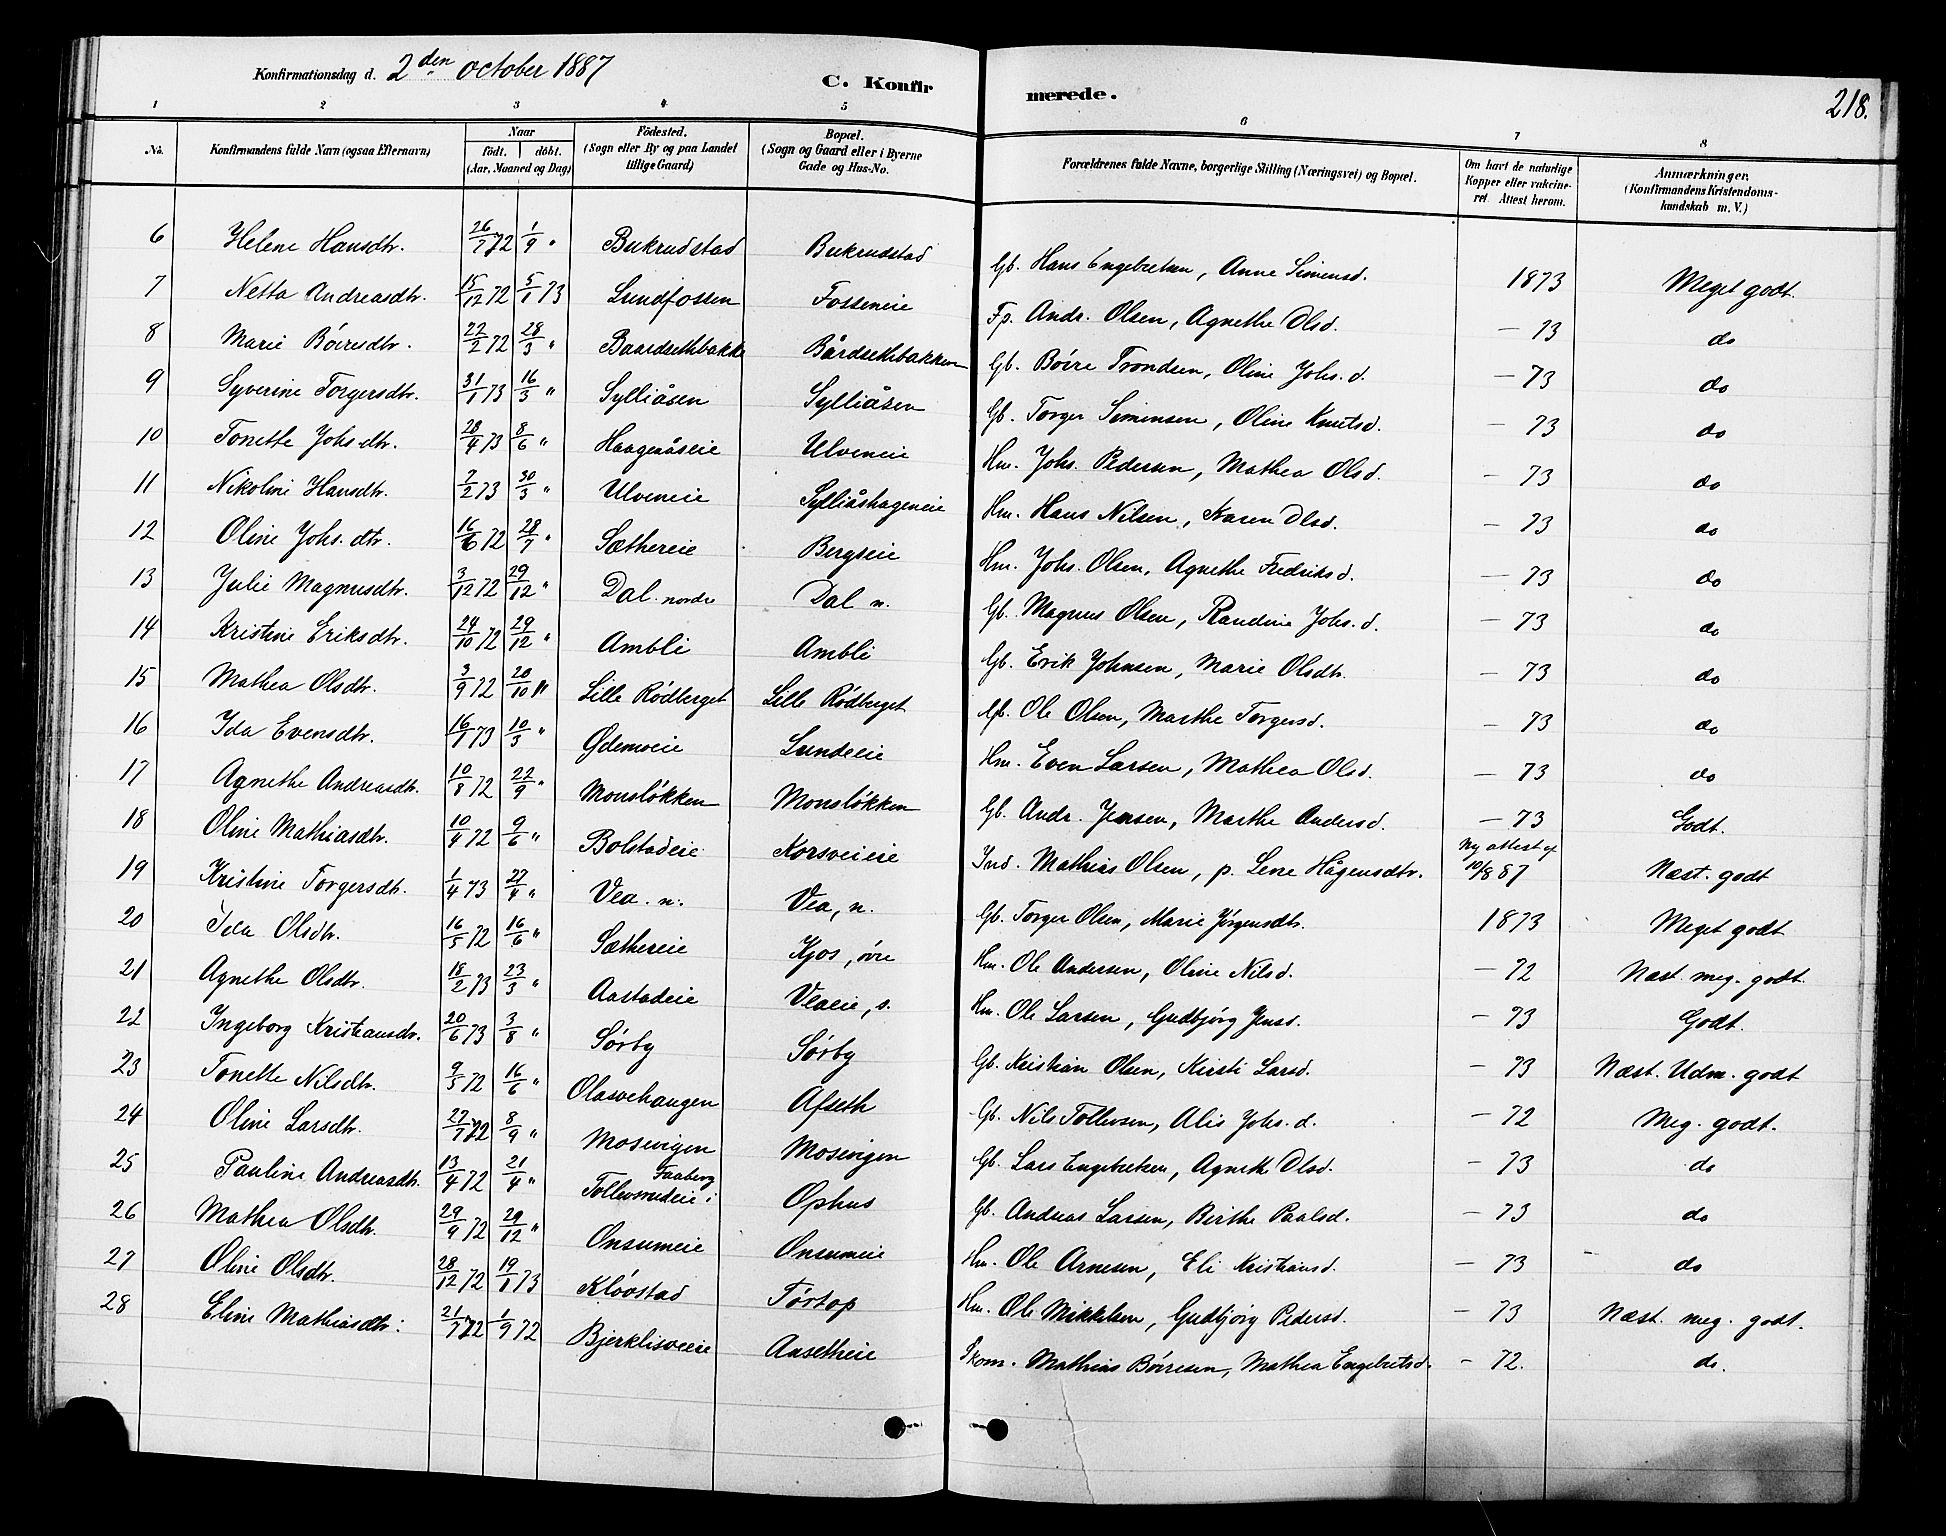 Konfirmationsdag d. 2den october 1887
C. Konfirmerede.
218.
1 2 3 4 5 6 7 8
No. Konfirmandens fulde Navn (ogsaa Efternavn) Naar födt. döbt. (Aar, Maaned og Dag) Födested. (Sogn eller By og paa Landet tillige Gaard) Bopæl. (Sogn og Gaard eller i Byerne Gade og Hus-No. Forældrenes fulde Navne, borgerlige Stilling (Næringsvei) og Bopæl. Om havt de naturlige Kopper eller vakcineret. Attest herom. Anmærkninger. (Konfirmandens Kristendomskundskab m. V.)
6 Helene Hansdtr. 26/7 72 1/9 " Bukrudstad Bukrudstad Gb. Hans Engebretsen, Anne Simensd. 1873 Meget godt.
7 Netta Andreasdtr. 15/12 72 5/1 73 Lundfossen Fosseneie Fp. Andr. Olsen, Agnethe Olsd. – 73 do
8 Marie Böiresdtr. 22/2 72 28/3 " Baardsethbakke Bårdsethbakken Gb. Böire Trondsen, Oline Johs. d. – 73 do
9 Syverine Torgersdtr. 31/1 73 16/3 " Sylliåsen Sylliåsen Gb. Torger Simensen, Oline Knutsd. – 73 do
10 Tonette Johs.dtr. 28/4 73 8/6 " Haagenåseie Ulveneie Hm. Johs. Pedersen, Mathea Olsd. – 73 do
11 Nikoline Hansdtr. 2/2 73 30/3 " Ulveneie Sylliåshageneie Hm. Hans Nilsen, Karen Olsd. – 73 do
12 Oline Johs. dtr. 16/6 72 28/7 " Sæthereie Bergseie Hm. Johs. Olsen, Agnethe Fredriksd. – 73 do
13 Julie Magnusdtr. 3/12 72 29/12 " Dal nordre Dal n. Gb. Magnus Olsen, Randine Johs. d. – 73 do
14 Kristine Eriksdtr. 24/10 72 29/12 " Ambli Ambli Gb. Erik Johnsen, Marie Olsdtr. – 73 do
15 Mathea Olsdtr. 3/9 72 20/10 " Lille Rödberget Lille Rödberget Gb. Ole Olsen, Marthe Torgersd. – 73 do
16 Ida Evensdtr. 16/1 73 10/3 " Ødemoeie Lundeeie Hm. Even Larsen, Mathea Olsd. – 73 do
17 Agnethe Andreasdtr. 10/8 72 22/9 " Monslökken Monslökken Gb. Andr. Jensen, Marthe Andersd. – 73 Godt.
18 Oline Mathiasdtr. 10/4 72 9/6 " Bolstadeie Korsveieie Ind. Mathias Olsen, p. Lene Hågensdtr. Ny attest af 10/8 87 Næst. godt
19 Kristine Torgersdtr. 1/4 73 27/4 " Vea. n. Vea, n. Gb. Torger Olsen, Marie Jörgensdtr. 1873 Meget godt
20 Ida Olsdtr. 16/5 72 16/6 " Sæthereie Kjos, övre Hm. Ole Andersen, Oline Nilsd. – 72 Næst. meg. godt.
21 Agnethe Olsdtr. 18/2 73 23/3 " Aastadeie Veaeie, s. Hm. Ole Larsen, Gudbjörg Jensd. – 73 Godt.
22 Ingeborg Kristiansdtr. 20/6 73 3/8 " Sörby Sörby Gb. Kristian Olsen, Kirsti Larsd. – 73 Næst. Udm. godt
23 Tonette Nilsdtr. 9/5 72 16/6 " Olasvehaugen Afseth Gb. Nils Tollevsen, Alis Johs. d. – 72 Meg. godt.
24 Oline Larsdtr. 27/7 72 8/9 " Mosevigen Mosevigen Gb. Lars Engebretsen, Agneth Olsd. – 73 do
25 Pauline Andreasdtr. 13/4 72 21/4 " Tollevsrudeie i Faaberg Ophus Gb. Andreas Larsen, Birthe Paalsd. – 73 do
26 Mathea Olsdtr. 29/9 72 29/12 " Onsumeie Onsumeie Hm. Ole Arnesen, Eli Kristiansd. – 73 do
27 Oline Olsdtr. 28/12 72 19/1 73 Klövstad Törtop Hm. Ole Mikkelsen, Gudbjörg Pedersd. – 73 Næst. meg. godt.
28 Eline Mathiasdtr: 21/7 72 1/9 72 Bjerklisveeie Aasetheie Skom. Mathias Böiresen, Mathea Engebretsd. – 72. do.